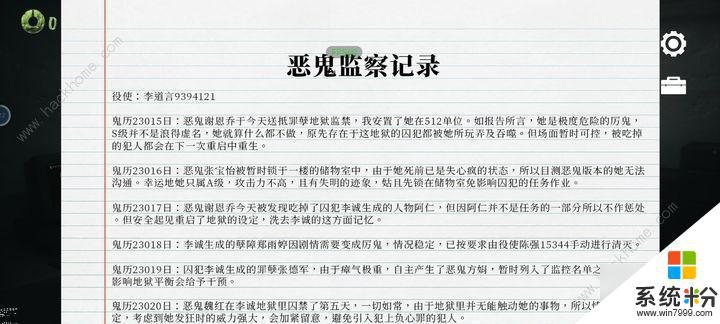 0
恶鬼监察记录
役使：李道言9394121
鬼历23015日：恶鬼谢恩乔于今天送抵罪孽地狱监禁，我安置了她在512单位。如报告所言，她是极度危险的厉鬼，
S级并不是浪得虚名，她就算什么都不做，原先存在于这地狱的囚犯都被她所玩弄及吞噬。但场面暂时可控，被吃掉
的犯人都会在下一次重启中重生。
鬼历23016日：恶鬼张宝怡被暂时锁于一楼的储物室中，由于她死前已是失心疯的状态，所以目测恶鬼版本的她无法
沟通。幸运地她只属A级，攻击力不高，且有失明的迹象，姑且先锁在储物室免影响囚犯的任务作业。
鬼历23017日：恶鬼谢恩乔今天被发现吃掉了囚犯李诚生成的人物阿仁，但因阿仁并不是任务的一部分所以不作惩处
。但安全起见重启了地狱的设定，洗去李诚的这方面记忆。
鬼历23018日：李诚生成的孽障郑雨婷因剧情需要变成厉鬼，情况稳定，已按要求由役使陈强15344手动进行清灭。
鬼历23019日：囚犯李诚生成的罪孽张德军，由于瘴气极重，自主产生了恶鬼方娟，暂时列入了监控名单之
影响地狱平衡会给予干预。
鬼历23020日：恶鬼魏红在李诚地狱里囚禁了第五天，一切如常，由于地狱里并无能触动她的事物，所以情
定，考虑到她发狂时的威力强大，会加紧留意，避免引入犯上负心罪的犯人。
www.hackhome.com
系统粉
www.win7999.com